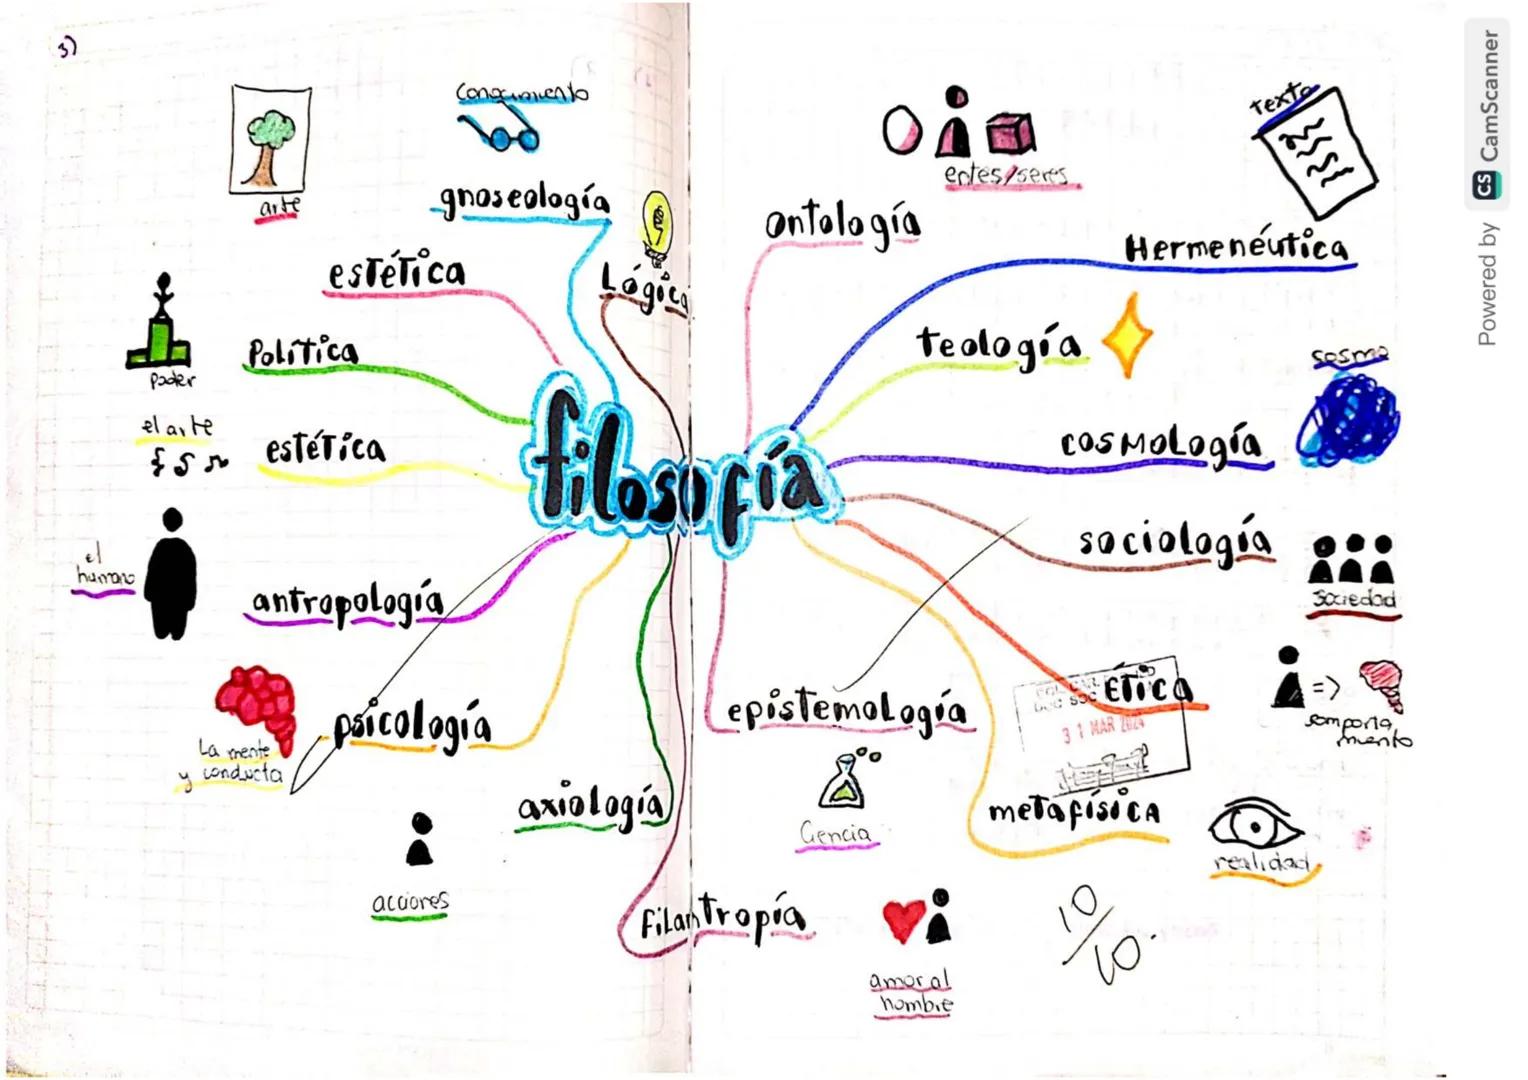 3)
arte
conocimiento
gnoseología
estética
Lógica
Política
poder
el arte
estética
el
humano
antropología
La mente
y conducta
psicología
axiología
acciones
filosofía
entes/seres
ontología
texto
Hermenéutica
teología
cosmología
sociología
Sociedad
Etica
comporta
miento
31 MAR 2024
epistemología
Ciencia
metafísica
realidad
filantropía
amor al
hombre
10/10.
Powered by CS CamScanner